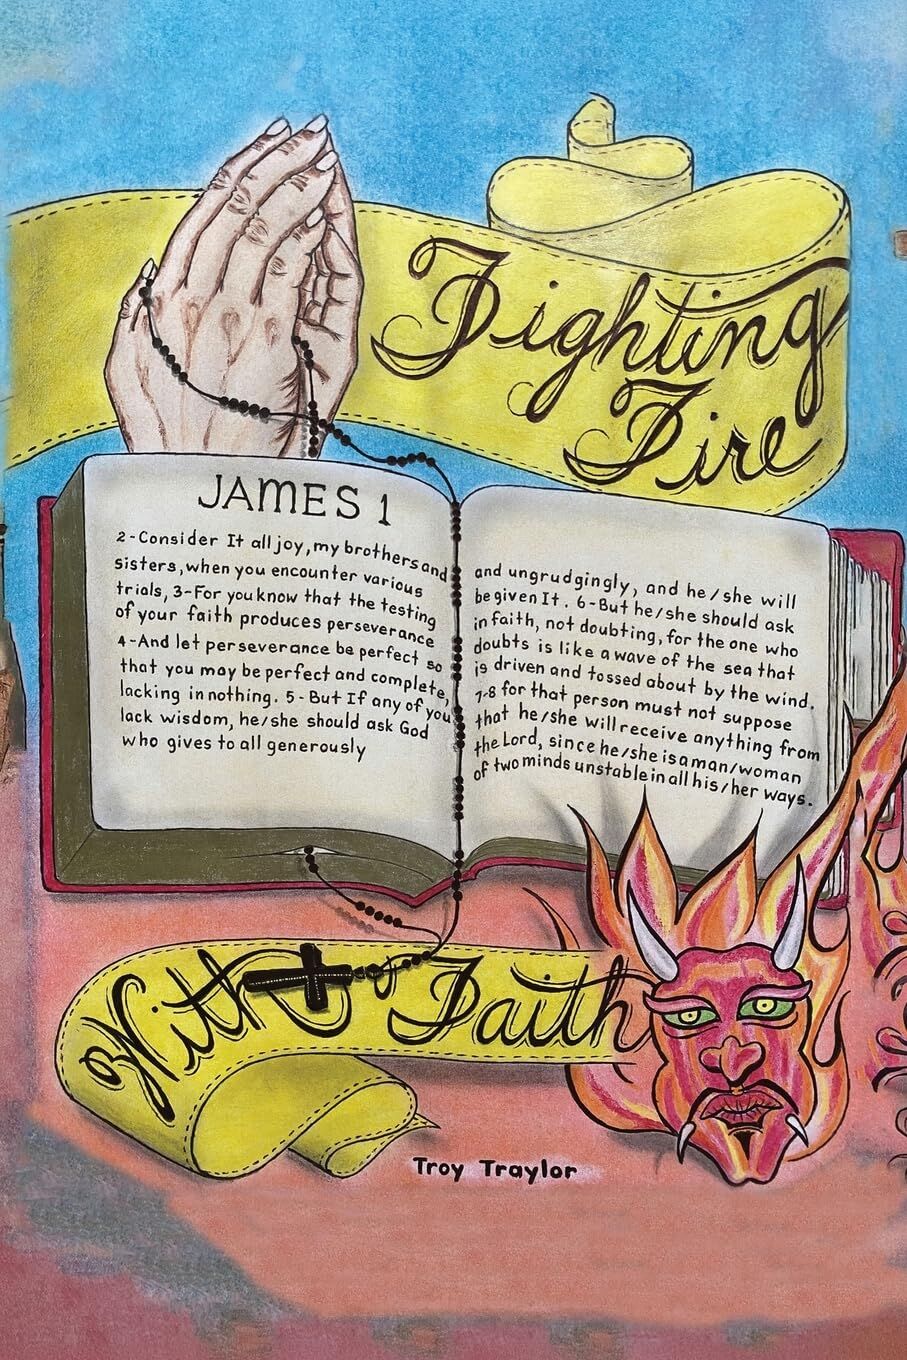 Fighting
Fire
JAMES 1
2-Consider It all joy, my brothers and
sisters, when you encounter various
trials, 3-For you know that the testing
of your faith produces perseverance
4-And let perseverance be perfect so
that you may be perfect and complete,
lacking in nothing. 5-But If any of you
lack wisdom, he/she should ask God
who gives to all generously
and ungrudgingly, and he/she will
be given It. 6-But he/she should ask
in faith, not doubting, for the one who
doubts is like a wave of the sea that
is driven and tossed about by the wind.
7-8 for that person must not suppose
that he/she will receive anything from
the Lord, since he/she is a man/woman
of two minds unstable in all his/her ways.
With Faith
Troy Traylor